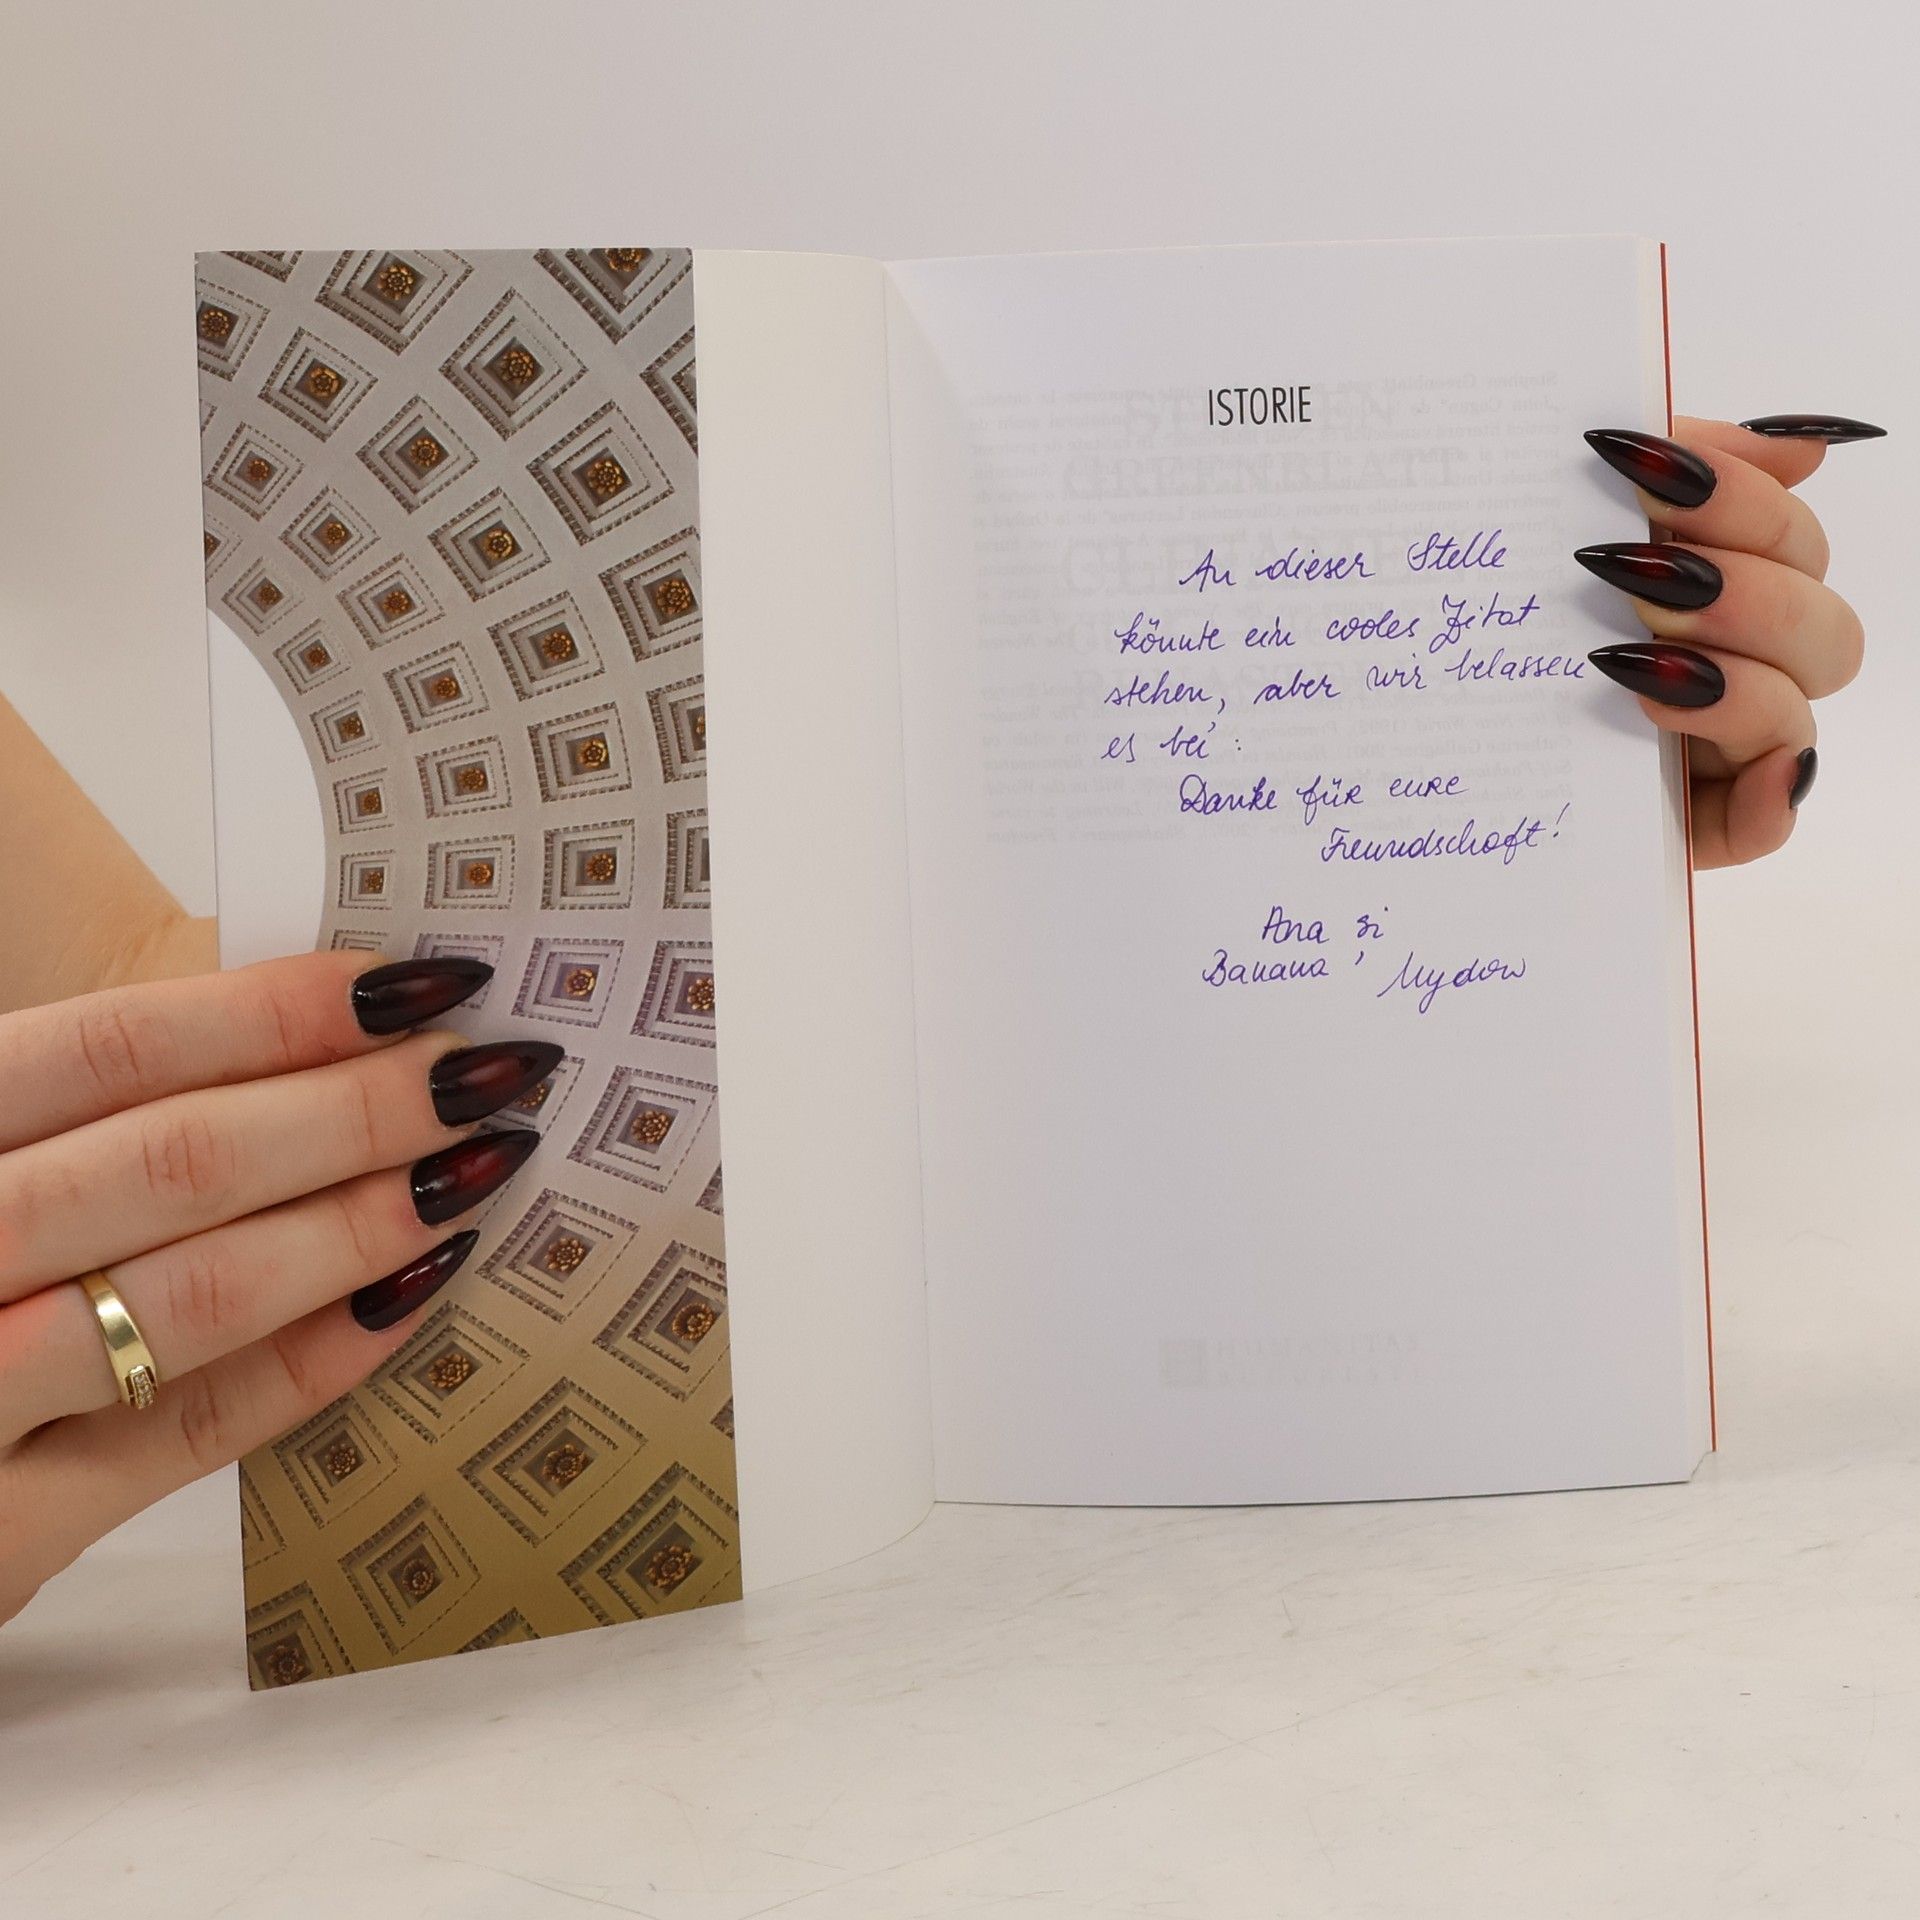 ISTORIE
An dieser Stelle
könnte ein cooles Zitat
stehen, aber wir belassen
es bei:
Danke für eure
Freundschaft!
Ana și
Banana,